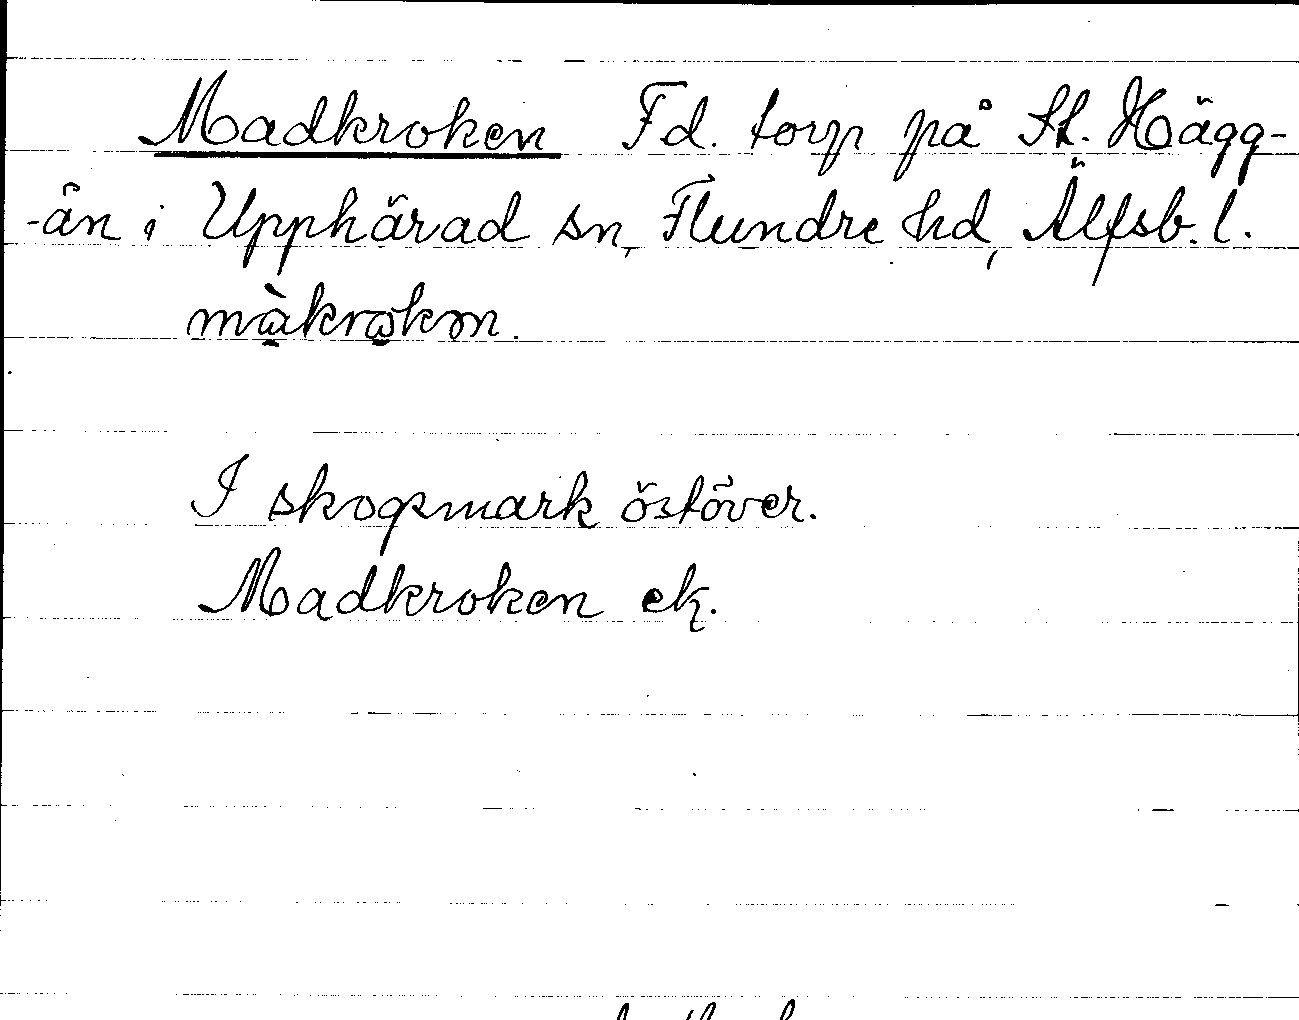 Madkroken Fd. torp på St. Hägg-
-än i Upphärad sn, Flundre hd, Älfsb. l.
I skogsmark östöver.
Madkroken ek.